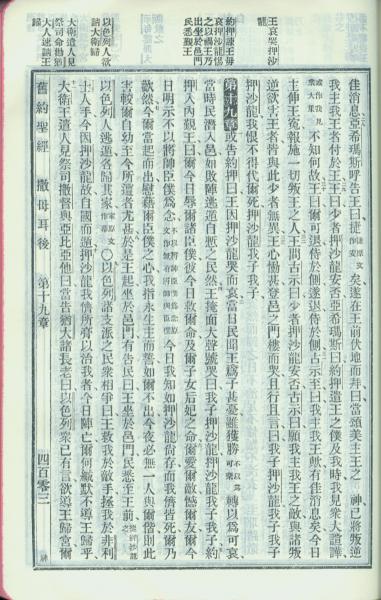 佳消息亞希瑪斯呼告王曰捷原文作安矣遂在王前伏地而拜曰當頌美主王之 神已將叛逆
我主我王者付於王王曰少者押沙龍安否亞希瑪斯曰約押遣王之僕及我時我見衆大諠譁
不知何故王曰爾可退侍於側遂退侍於側古示至曰我主我王歟有佳消息矣今日
主伸王冤報施一切叛王之人王問古示曰少者押沙龍安否古示曰願我主我王之敵與諸叛
逆欲害王者皆與此少者無異王心慟甚登邑門之樓而哭且行且言曰我子押沙龍我子我子
押沙龍我恨不得代爾死押沙龍我子我子
第十九章或告約押曰王因押沙龍哭而哀當日民聞王爲子甚憂雖獲勝不以爲可樂轉以爲可哀
當時民潛入邑如敗陣逃遁自慙之民然王掩面大聲號哭曰我子押沙龍押沙龍我子我子約
押入內覲王曰王今日辱諸臣僕彼今日救爾命及爾子女后妃之命爾愛爾敵憾爾友爾今
日明示不以將帥臣僕爲念今日我知如押沙龍尙存而我儕皆死爾乃
歡然今爾當起而出慰藉爾臣僕之心我指永生主而誓如爾不出今夜必無一人與爾偕則此
害較爾自幼至今所遭者尤甚於是王起坐於邑門有告民曰王坐於邑門民悉至王前
以色列人逃遁各歸其家原文作幕〇以色列諸支派之民衆相爭曰王救我於敵手拯我於非利
士人手今因押沙龍故自國而遁押沙龍我儕所膏以治我者今日陣亡爾何緘默不導王歸乎
大衛王遣人見祭司撒督與亞比亞他曰當告猶大諸長老曰以色列衆已有言欲導王歸宮爾
舊約聖經 撒母耳後 第十九章 四百零三
王哀哭押沙龍
約押諫王毋因押沙龍惕之以禍王乃出坐於邑門民悉覲王
以色列人欲請大衛歸
大衛遣人見祭司命勸猶大人速請王歸